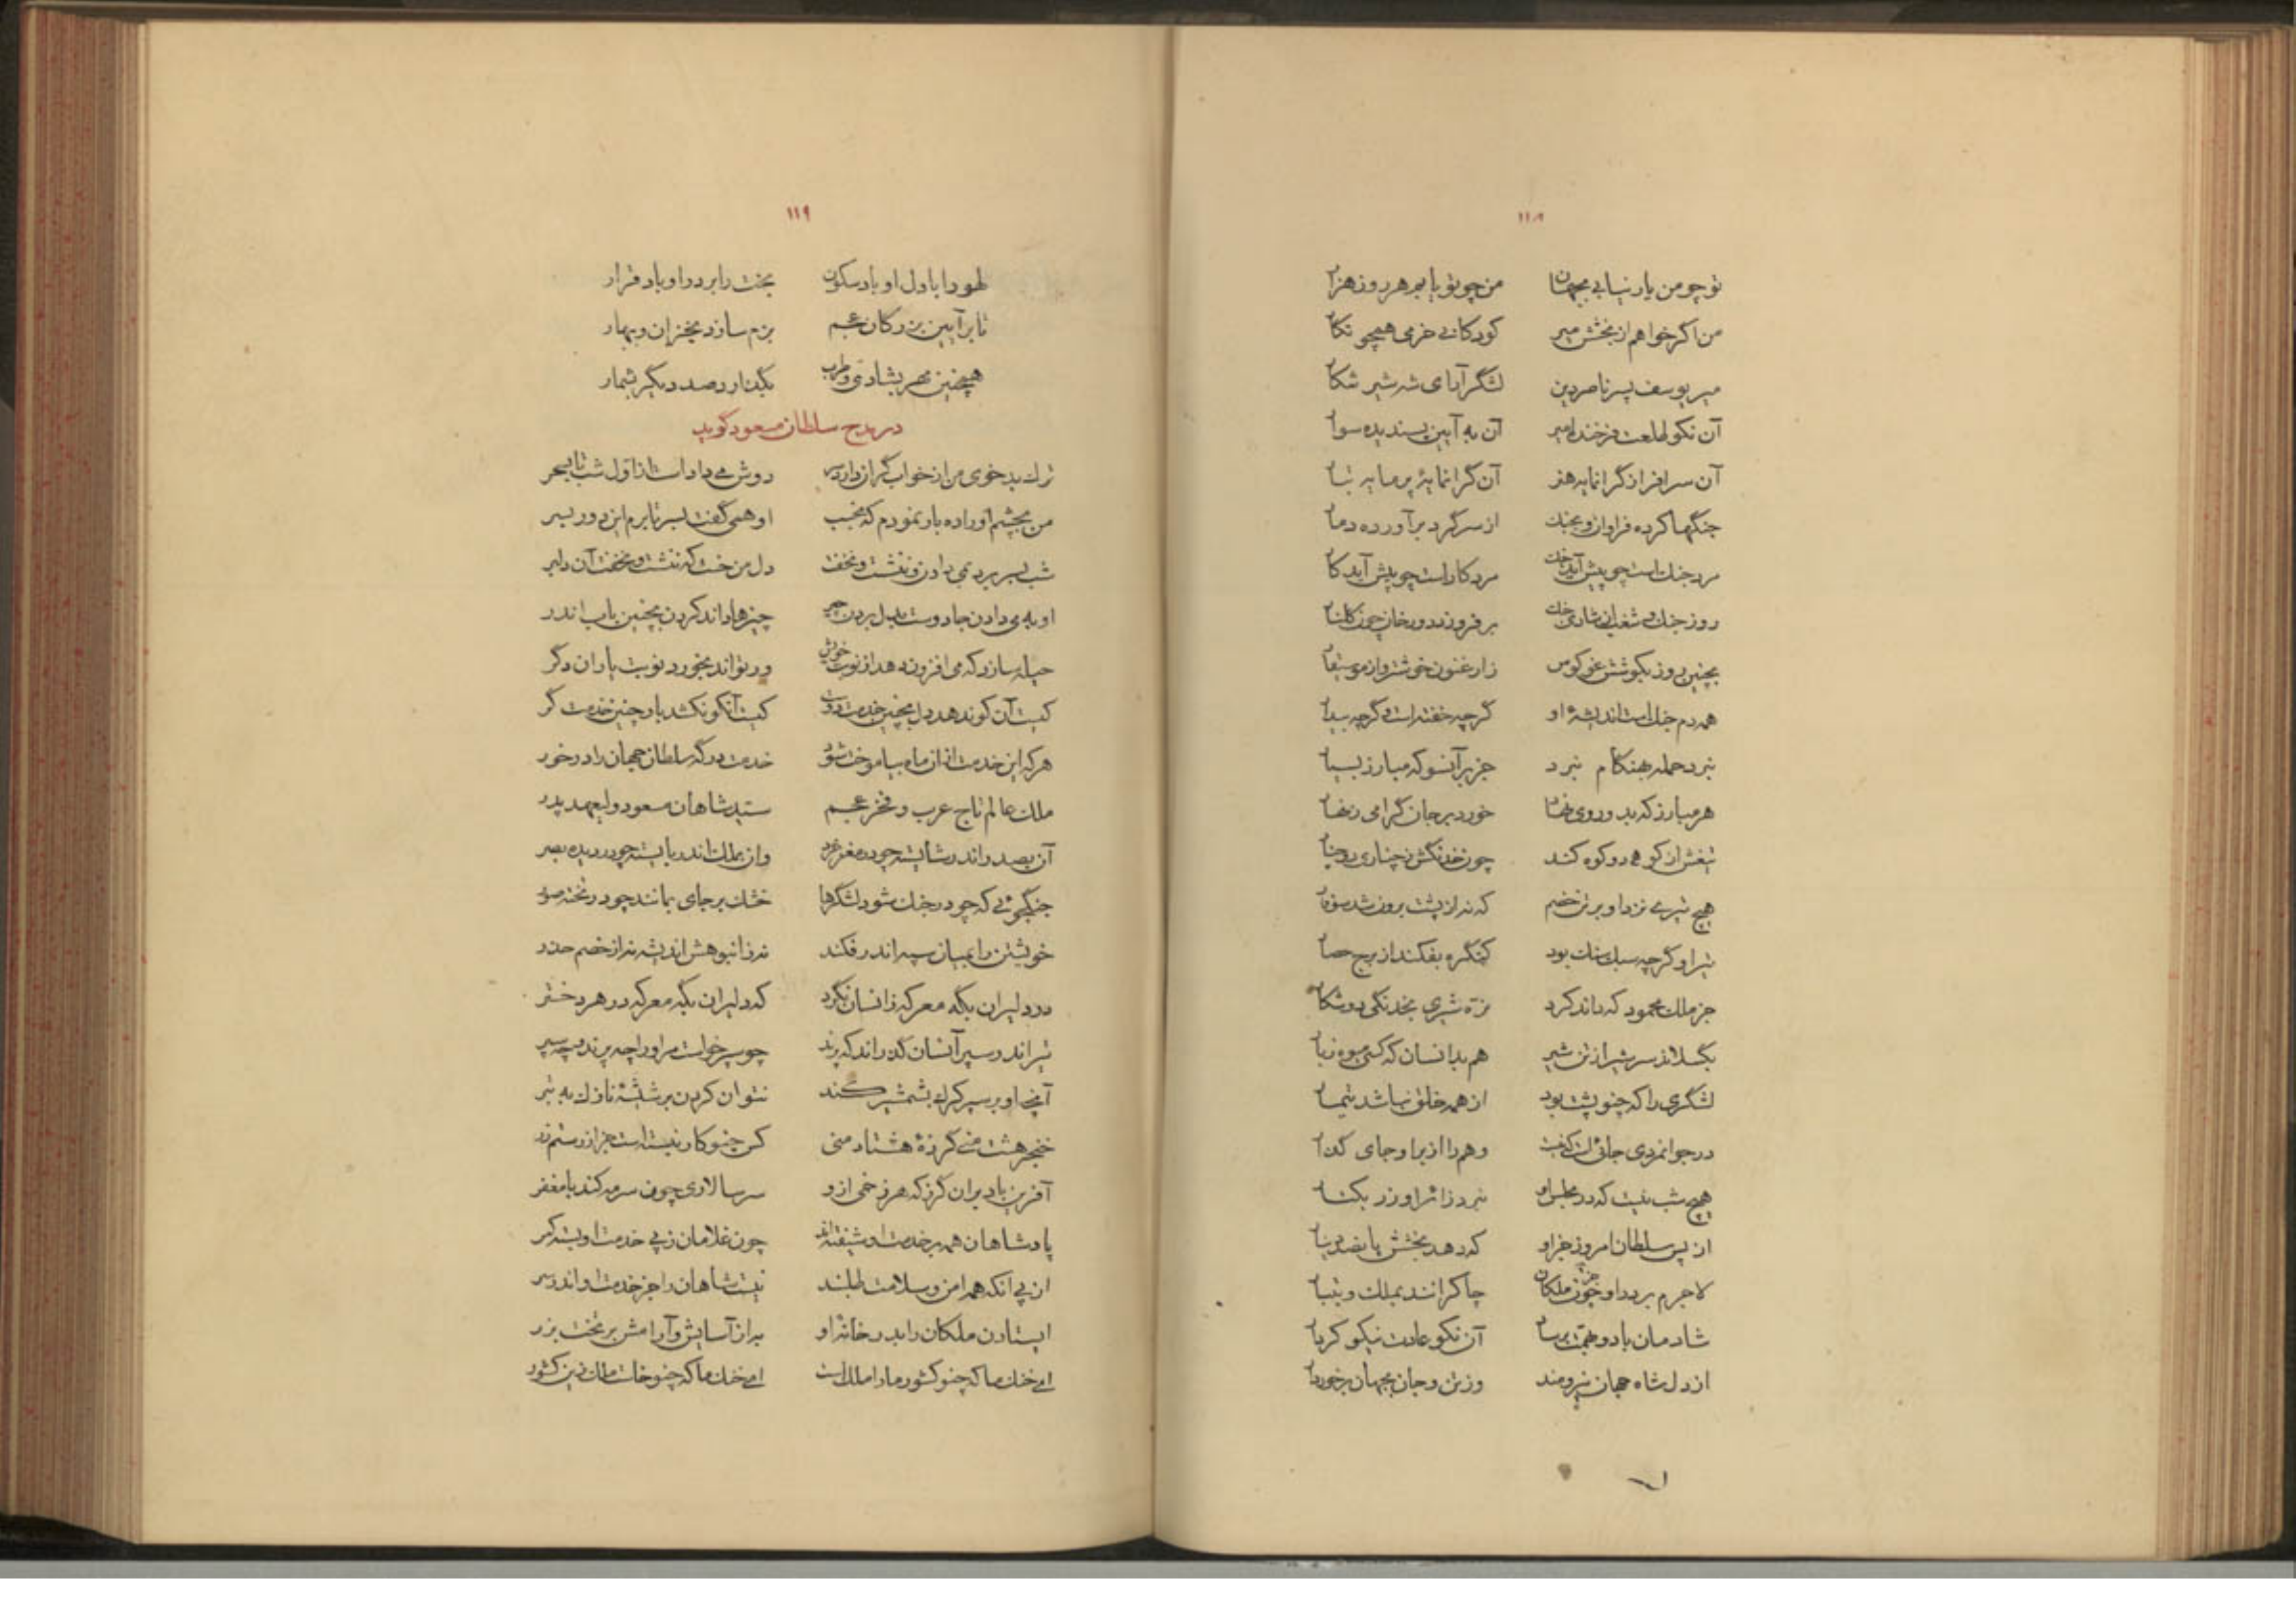 ۱۱۸
تو چو من یار نیابی بجهان من چو تو یابم هر روز هزار
من اگر خواهم از بخشش میر کودکانی خرمی همچو نگار
میر یوسف پسر ناصر دین لشگر آرای شه شیر شکار
آن نکو طلعت فرخنده امیر آن به آیین پسندیده سوار
آن سرافراز گرانمایه هنر آن گرانمایهٔ پرمایه تبار
جنگها کرده فراوان و بجنگ از سر گرد برآورده دمار
مرد جنگ است چو پیش آید جنگ مرد کار است چو پیش آید کار
روز جنگ و شغب از شادی جنگ برفروزد دو رخان چون گلنار
بچنین روز بکوشش غو کوس ز ارغنون خوشتر و از موسیقار
همه دم جنگ است اندیشهٔ او گرچه خفته است و گرچه بیدار
نبرد حمله بهنگام نبرد جز بر آنسو که مبارز بسیار
هر مبارز که بدو روی نهاد خورد بر جان گرامی زنهار
تیغش ار کوه دو کوه کند چون خدنگش ز چناری دو چنار
هیچ تیری نزد او بر تن خصم که نه از پشت برون شد سوفار
تیر او گرچه سبک سنگ بود کنگره بفکند از برج حصار
جز ملک محمود که داند کرد نره شیری بخدنگی دو شکار
بگسلاند سر شیر از تن شیر هم بدانسان که کسی میوه ز بار
لشگری را که چنو پشت بود از همه خلق نباشد تیمار
در جوانمردی جائی است که نیست وهم را از بر او جای گذار
هیچ شب نیست که در مجلس او نبرد زائر او زر بکنار
از پس سلطان امروز جز او که دهد بخشش پانصد دینار
لاجرم بر در او چون ملکان چاکرانند بملک و بتبار
شادمان باد و بهمت برساد آن نکو عادت نیکو کردار
از دل شاه جهان نیرومند وز تن و جان بجهان برخوردار
۱۱۹
لهو را با دل او باد سکون بخت را بر در او باد قرار
تا بر آیین بزرگان عجم بزم سازد بخزان و بهار
همچنین مهر بشادی و طرب بگذار صد دیگر بشمار
در مدح سلطان مسعود گوید
ترک بدخوی من از خواب گران دارد سر دوش می داد است از اول شب تا بسحر
من بچشم او را ده بار نمودم که بخسب او همی گفت بسر تا برم این دور بسر
شب بسر برد بمی دادن و ننشست و نخفت دل من خست که ننشست و نخفت آن دلبر
او بمی دادن جادوست بدل بردن چیزها داند کردن بچنین باب اندر
حیله سازد که می افزون دهد از نوبت خویش ور تواند بخورد نوبت یاران دگر
کیست آن کو ندهد دل بچنین خدمت دوست کیست آنکو نکشد بار چنین خدمت گر
هر که این خدمت از آن ماه بیاموخت شود خدمت درگه سلطان جهان را در خور
ملک عالم تاج عرب و فخر عجم سید شاهان مسعود ولیعهد پدر
آن بصدر اندر شایسته چو در مغز خرد وان بملک اندر بایسته چو در دیده بصر
جنگجویی که چو در جنگ شود لشگرها خشک بر جای بمانند چو در تخته صور
خویشتن را بمیان سپه اندر فکند نه ز انبوهش اندیشه نه از خصم حذر
در دلیران بگه معرکه زانسان نگرد که دلیران بگه معرکه در هر دختر
تیر اندر سپر آنسان گذراند که پرند چو سپر خواست مر او را چه پرند و چه سپر
آنچه او بر سپر کرگ بشمشیر کند نتوان کردن بر شیشهٔ نازک به تبر
خنجر هشت منی گرزهٔ هشتاد منی کس چنو کار نبسته است جز از رستم زر
آفرین باد بر آن گرز که هر زخمی ازو سر سالاری چون سرمه کند با مغفر
پادشاهان همه بر خدمت او شیفته اند چون غلامان ز پی خدمت او بسته کمر
از پی آنکه همه امن و سلامت طلبند نیست شاهان را جز خدمت او اندر سر
ایستادن ملکان را بدر خانهٔ او به از آسایش و آرامش بر تخت بزر
ای خنک ما که چنو کشور ما را ملک است ای خنک ما که چنو خاست ملک زین کشور